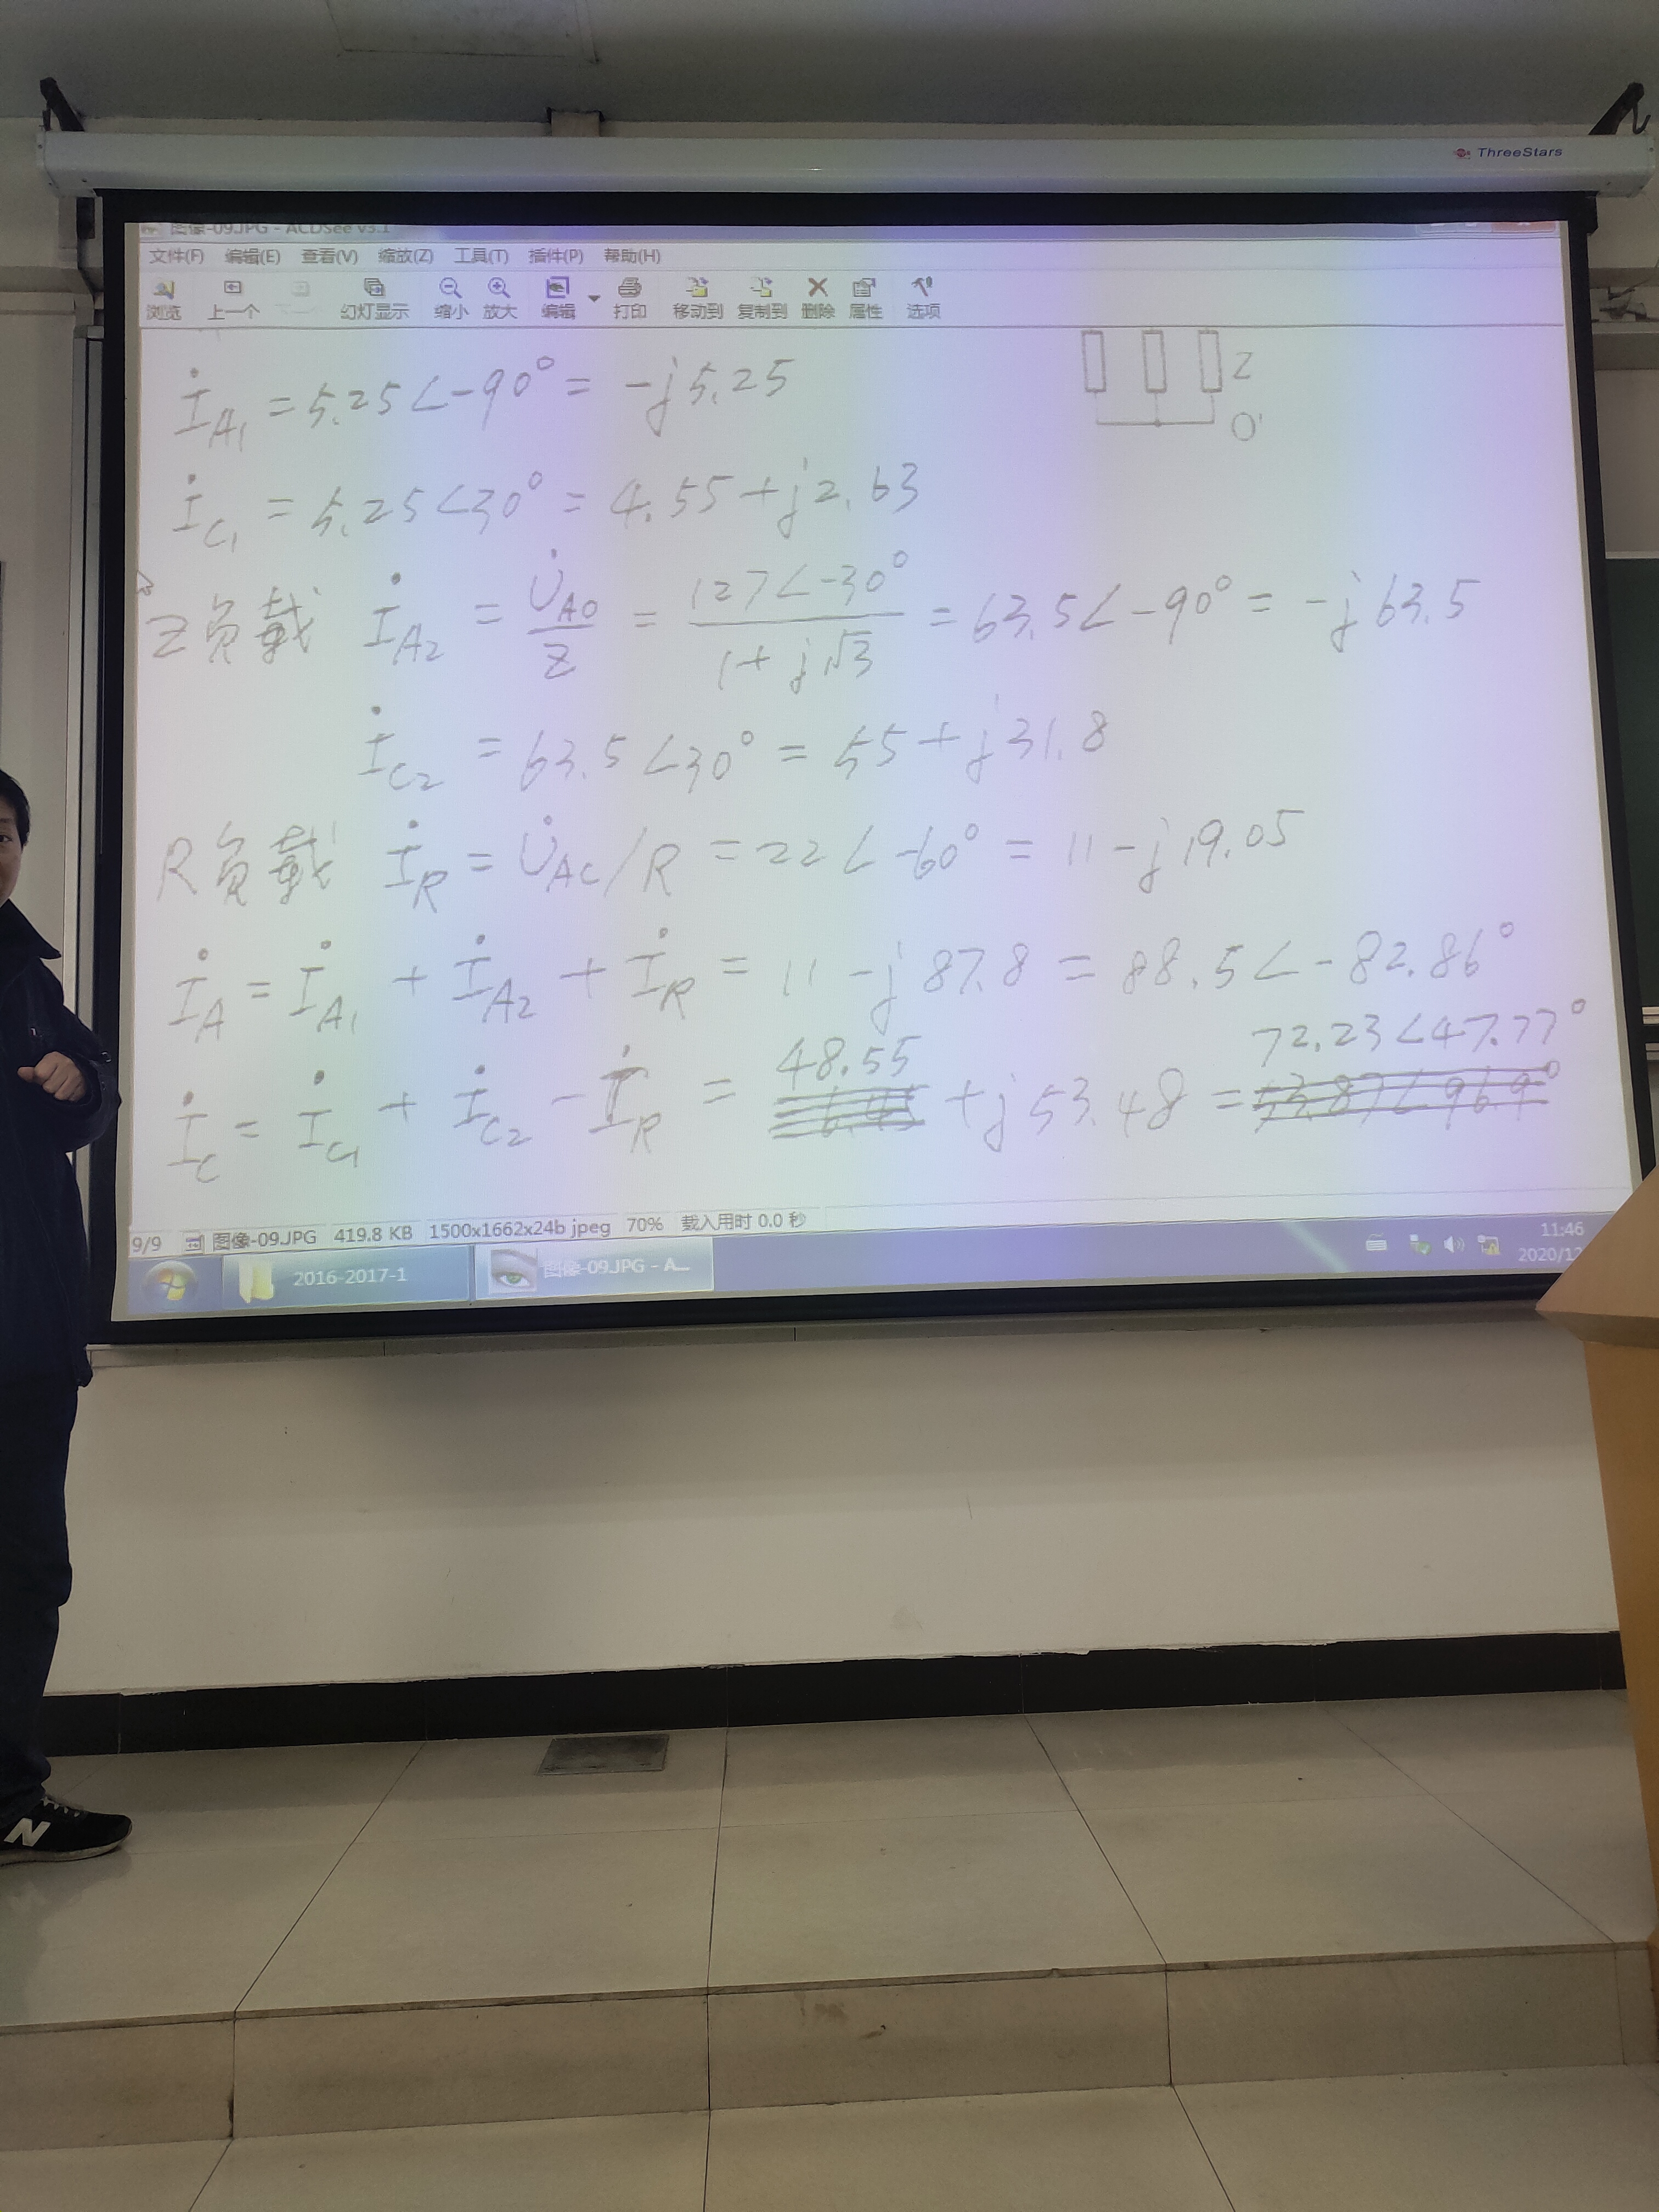 ThreeStars
图像-09.JPG - ACDSee v3.1
文件(F) 编辑(E) 查看(V) 缩放(Z) 工具(T) 插件(P) 帮助(H)
浏览 上一个 下一个 幻灯显示 缩小 放大 编辑 打印 移动到 复制到 删除 属性 选项
Z
O'
İ_A1 = 5.25∠-90° = -j5.25
İ_C1 = 5.25∠30° = 4.55+j2.63
Z负载 İ_A2 = U̇_AO/Z = 127∠-30°/(1+j√3) = 63.5∠-90° = -j63.5
İ_C2 = 63.5∠30° = 55+j31.8
R负载 İ_R = U̇_AC/R = 22∠-60° = 11-j19.05
İ_A = İ_A1 + İ_A2 + İ_R = 11-j87.8 = 88.5∠-82.86°
İ_C = İ_C1 + İ_C2 - İ_R = 48.55 +j53.48 = 72.23∠47.77°
9/9 图像-09.JPG 419.8 KB 1500x1662x24b jpeg 70% 载入用时 0.0 秒
2016-2017-1 图像-09.JPG - A... 11:46
2020/12
N